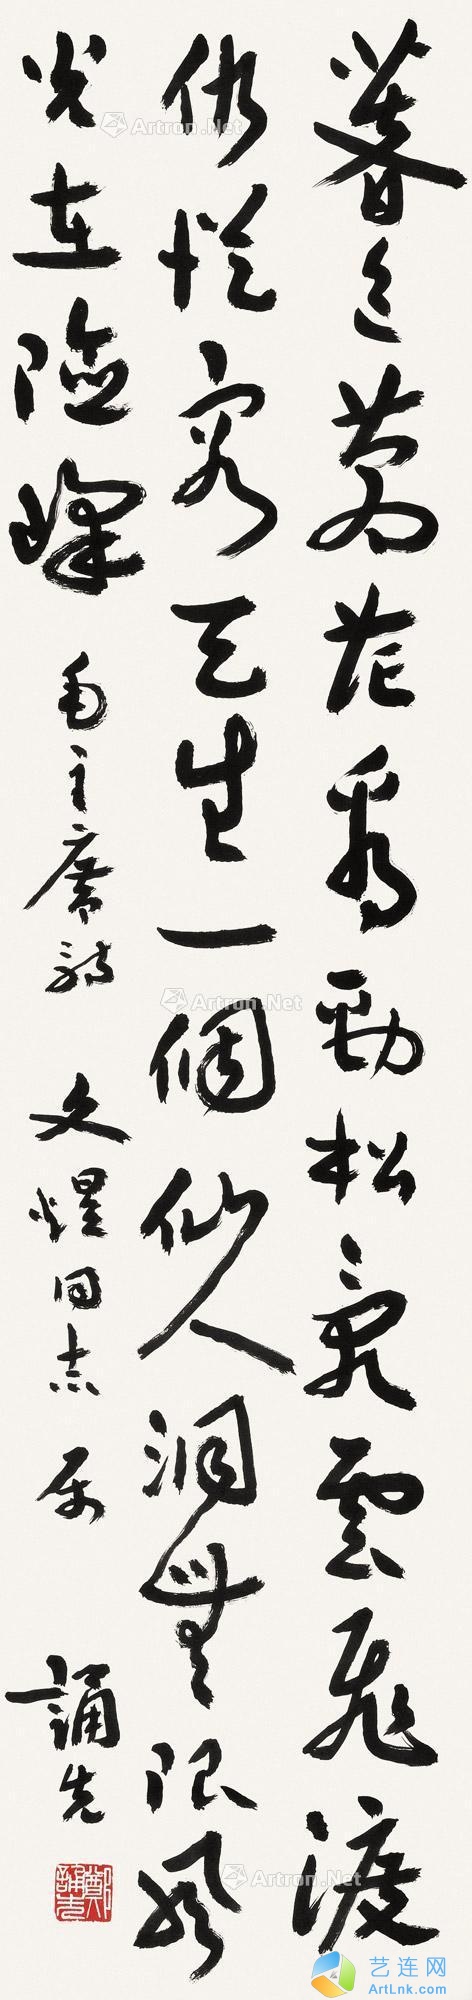 暮色蒼茫看勁松亂雲飛渡
仍從容天生一個仙人洞無限風
光在險峰 毛主席詩 文 同志属 誦先
鄭誦先
Artron.Net
Artron.Net
Artron.Net
Artron.Net
Artron.Net
艺连网
ArtLnk.com